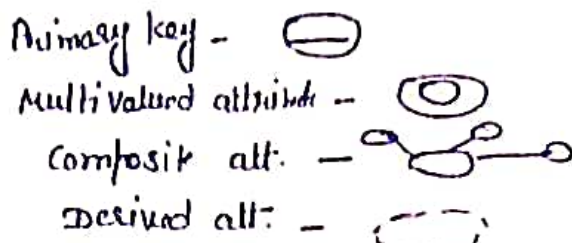 Primary key -
Multivalued attribute -
Composit att. -
Derived att: -